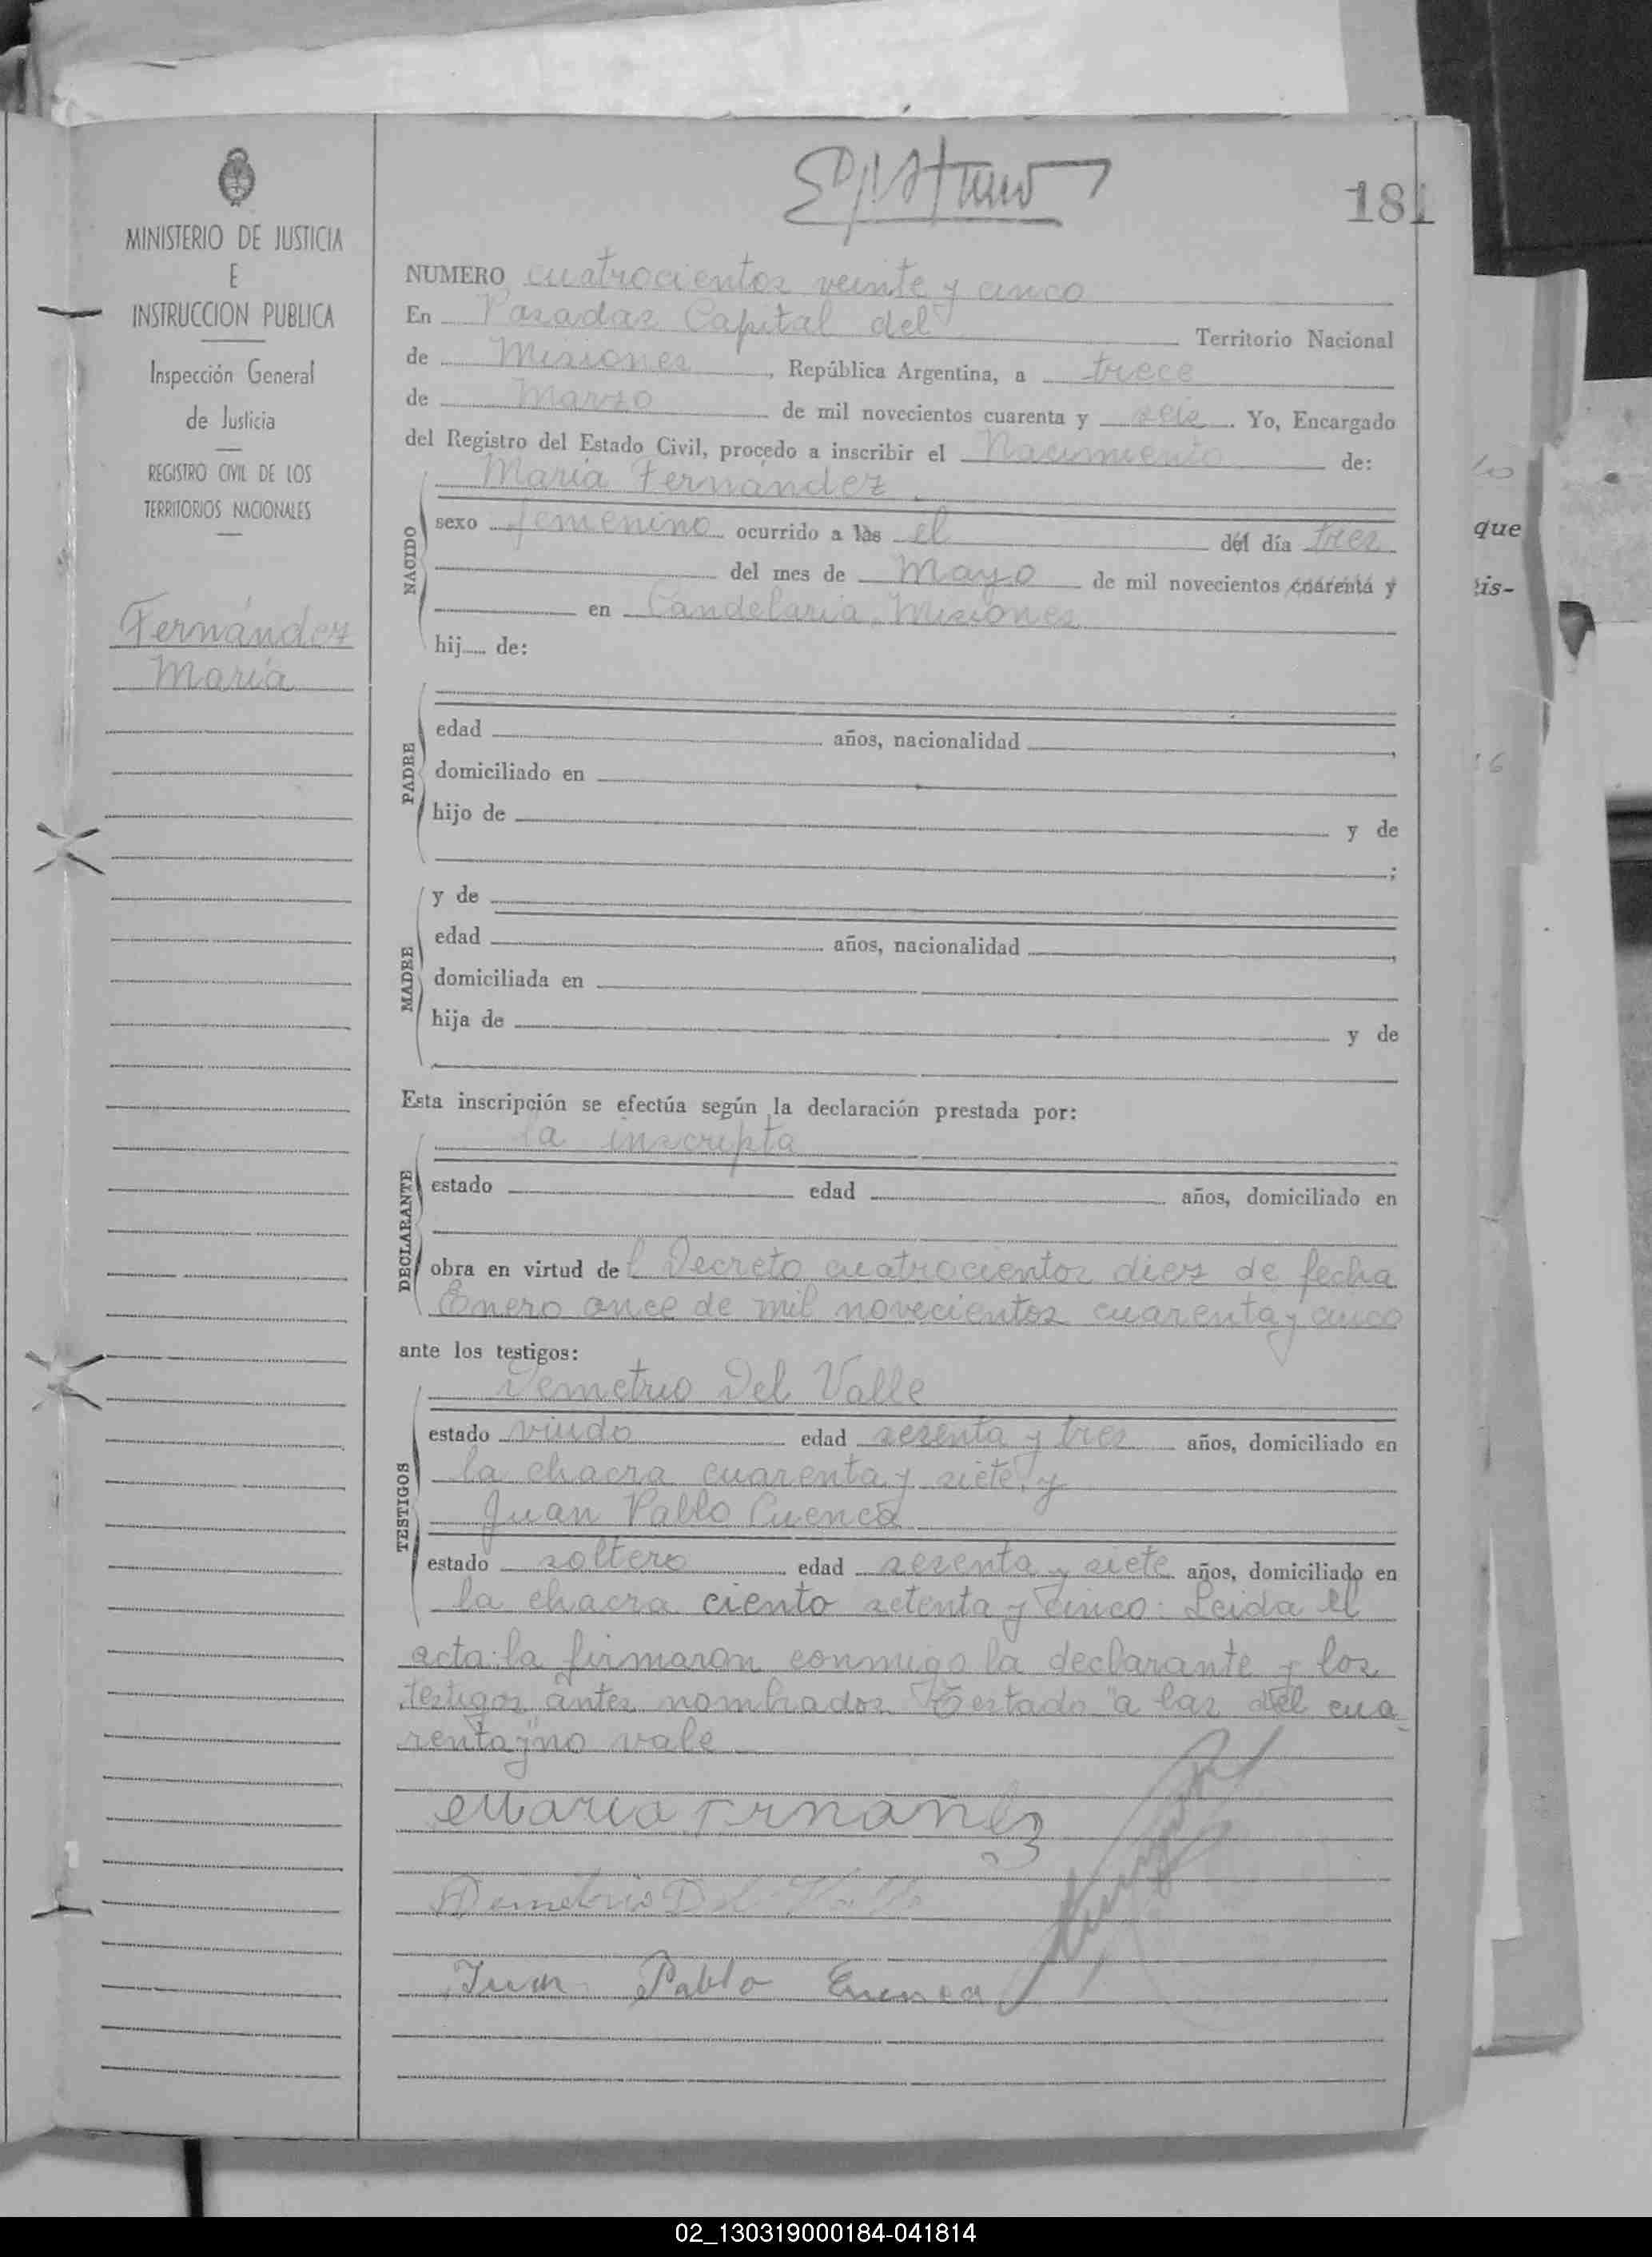 181
MINISTERIO DE JUSTICIA
E
INSTRUCCION PUBLICA
Inspección General
de Justicia
REGISTRO CIVIL DE LOS
TERRITORIOS NACIONALES
Fernández
María
NUMERO cuatrocientos veinte y cinco
En Posadas Capital del Territorio Nacional
de Misiones, República Argentina, a trece
de Marzo de mil novecientos cuarenta y seis. Yo, Encargado
del Registro del Estado Civil, procedo a inscribir el Nacimiento de:
María Fernández.
NACIDO
sexo femenino ocurrido a las el del día tres
del mes de Mayo de mil novecientos cuarenta y
en Candelaria, Misiones
hij de:
PADRE
edad años, nacionalidad ,
domiciliado en
hijo de y de
;
MADRE
y de
edad años, nacionalidad ,
domiciliada en
hija de y de
Esta inscripción se efectúa según la declaración prestada por:
la inscripta
DECLARANTE
estado edad años, domiciliado en
obra en virtud del Decreto cuatrocientos diez de fecha
Enero once de mil novecientos cuarenta y cinco
ante los testigos:
TESTIGOS
Demetrio Del Valle
estado viudo edad sesenta y tres años, domiciliado en
la chacra cuarenta y siete, y
Juan Pablo Cuenca
estado soltero edad sesenta y siete años, domiciliado en
la chacra ciento setenta y cinco. Leida el
acta la firmaron conmigo la declarante y los
testigos antes nombrados. Testado "a las del cua-
renta y" no vale
Maria Fernandez
Demetrio Del Valle
Juan Pablo Cuenca
que
tis-
02_130319000184-041814